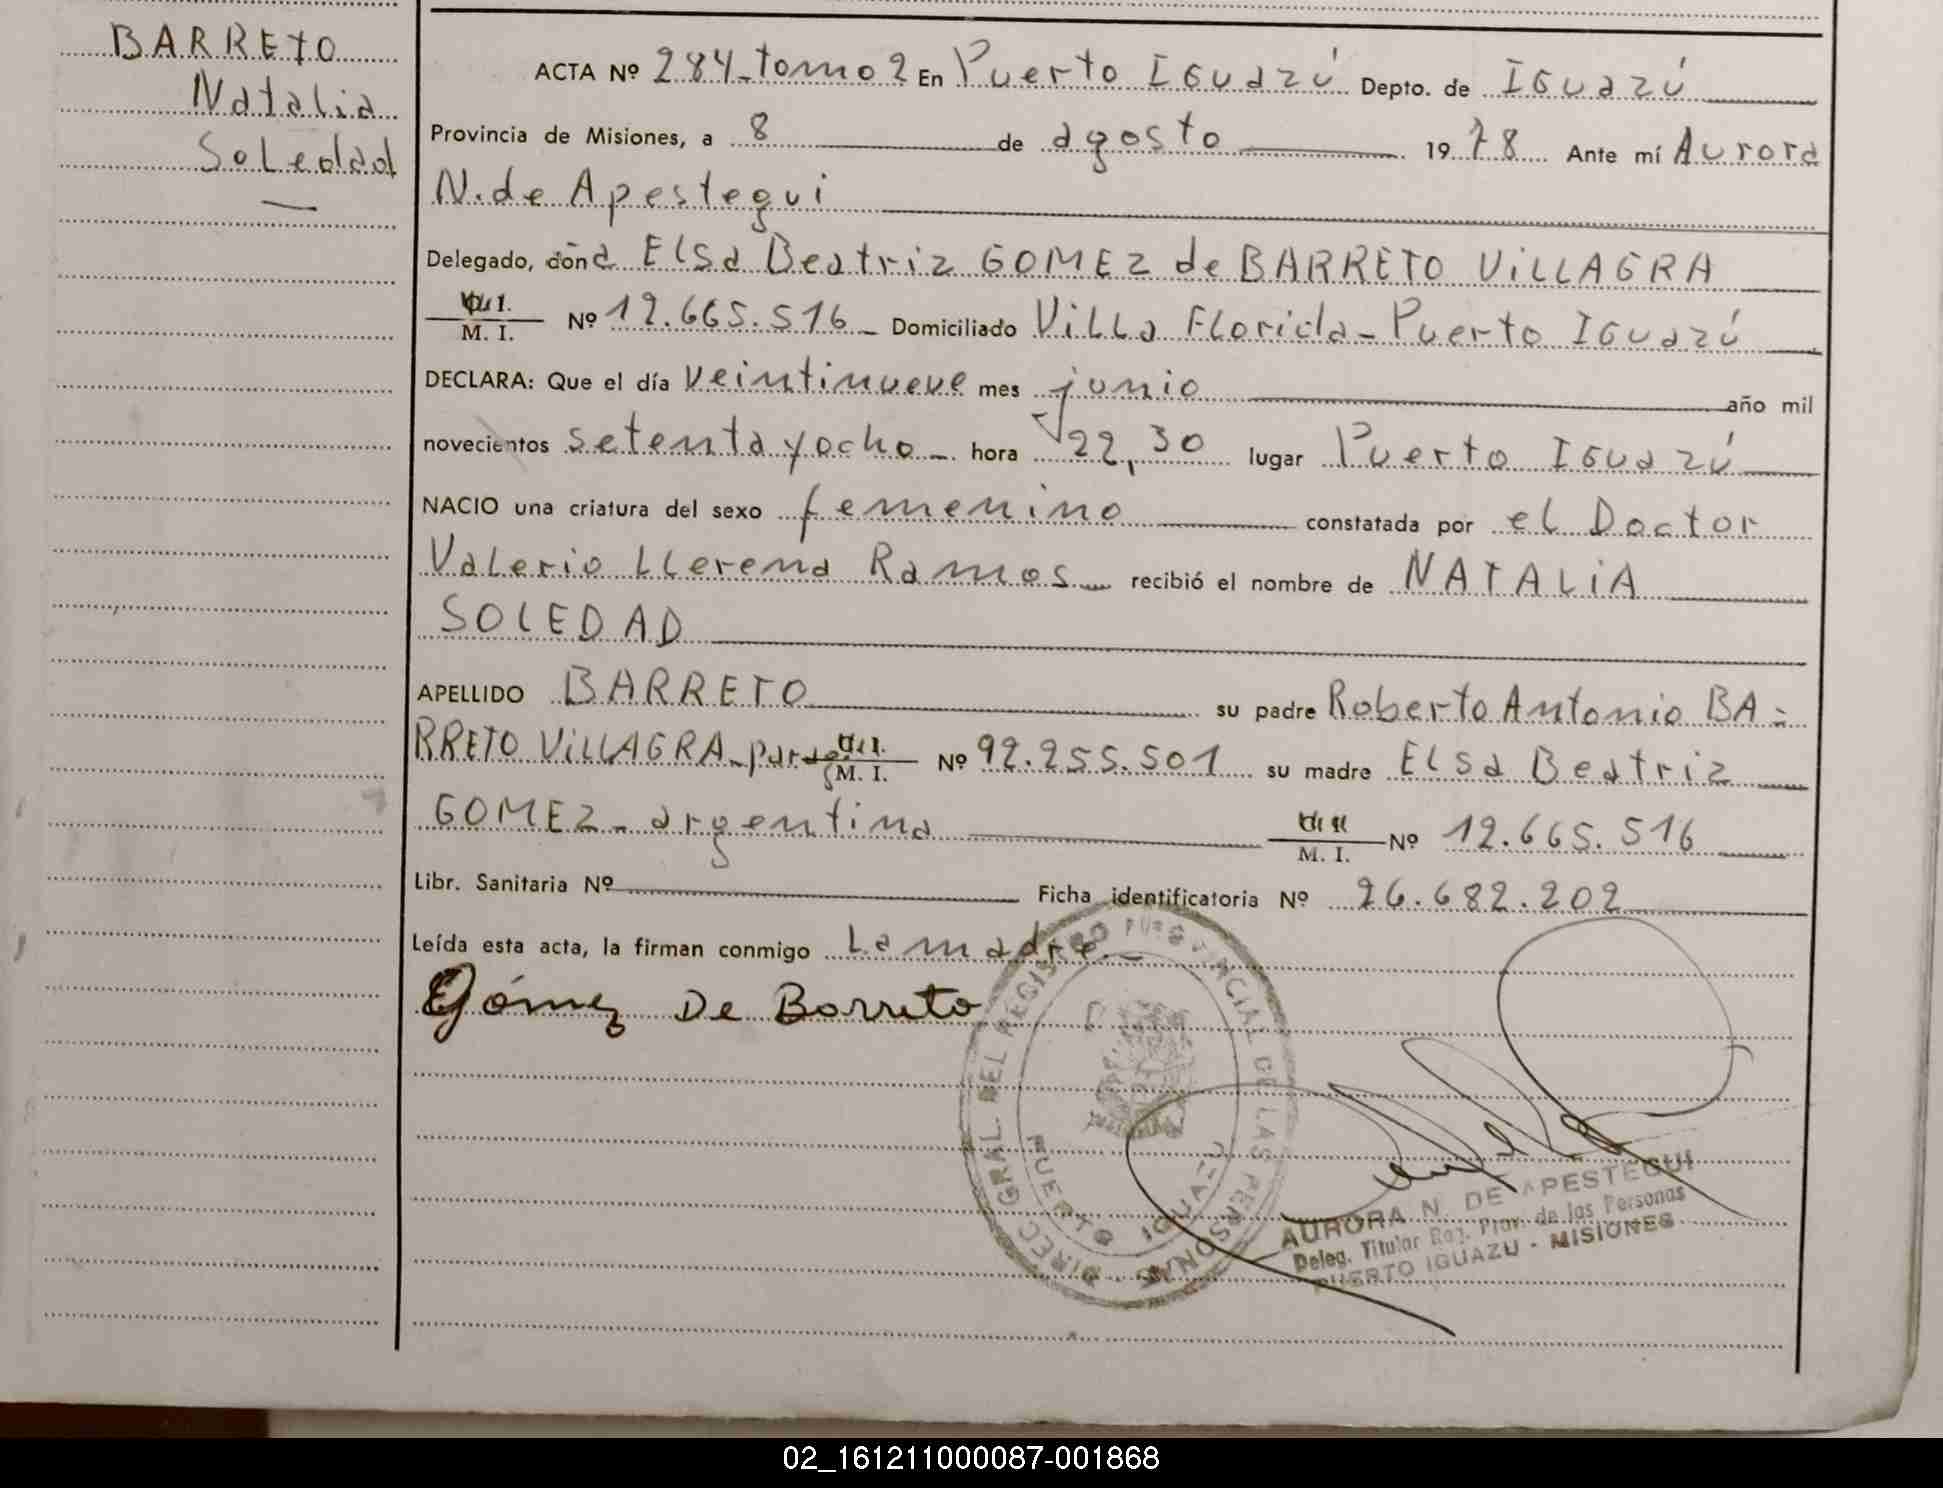 BARRETO
Natalia
Soledad
ACTA Nº 284-tomo 2 En Puerto Iguazú Depto. de Iguazú
Provincia de Misiones, a 8 de agosto 1978 Ante mí Aurora
N. de Apestegui
Delegado, doña Elsa Beatriz GOMEZ de BARRETO VILLAGRA
M. I. Nº 12.665.516 Domiciliado Villa Florida - Puerto Iguazú
DECLARA: Que el día veintinueve mes junio año mil
novecientos setenta y ocho hora 22,30 lugar Puerto Iguazú
NACIO una criatura del sexo femenino constatada por el Doctor
Valerio Llerena Ramos recibió el nombre de NATALIA
SOLEDAD
APELLIDO BARRETO su padre Roberto Antonio BA=
RRETO VILLAGRA M. I. Nº 92.255.501 su madre Elsa Beatriz
GOMEZ - argentina M. I. Nº 12.665.516
Libr. Sanitaria Nº Ficha identificatoria Nº 26.682.202
Leída esta acta, la firman conmigo la madre.-
Gómez De Barreto
DIREC. GRAL. DEL REGISTRO PROVINCIAL DE LAS PERSONAS
PUERTO IGUAZU
AURORA N. DE APESTEGUI
Deleg. Titular Reg. Prov. de las Personas
PUERTO IGUAZU - MISIONES
02_161211000087-001868